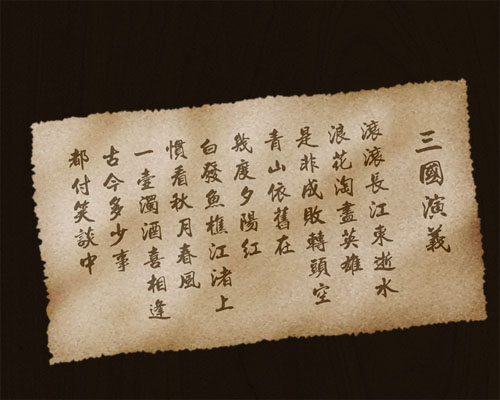 三國演義
滾滾長江東逝水
浪花淘盡英雄
是非成敗轉頭空
青山依舊在
幾度夕陽紅
白發魚樵江渚上
慣看秋月春風
一壺濁酒喜相逢
古今多少事
都付笑談中